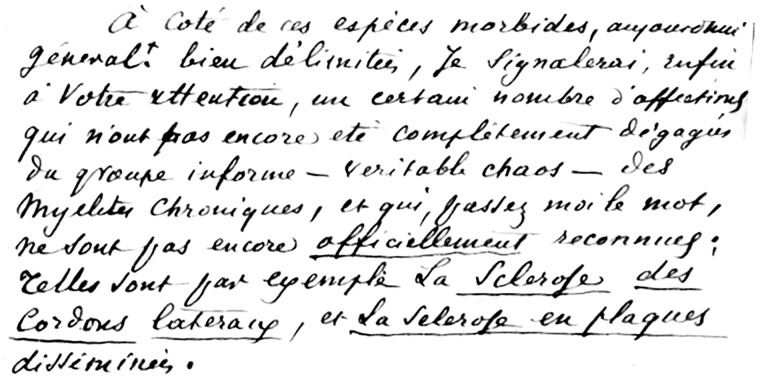 À coté de ces espèces morbides, aujourdhui
général.t bien délimitées, Je Signalerai, enfin
à Votre attention, un certain nombre d'affections
qui n'ont pas encore eté complètement dégagées
du groupe informe — veritable chaos — des
Myelites Chroniques, et qui, passez moi le mot,
ne sont pas encore officiellement reconnues;
Telles sont par exemple La Sclerose des
Cordons lateraux, et La Sclerose en plaques
disséminées.